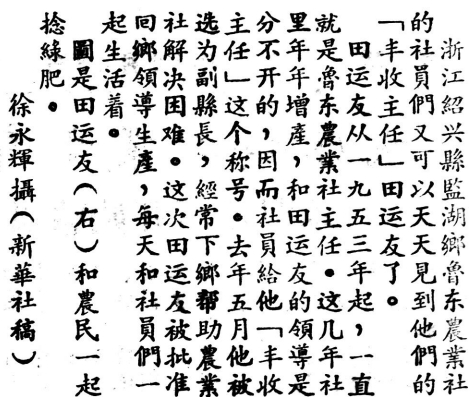 浙江紹兴縣監湖鄉魯东農業社
的社員們又可以天天見到他們的
「丰收主任」田运友了。
田运友从一九五三年起，一直
就是魯东農業社主任。这几年社
里年年增產，和田运友的領導是
分不开的，因而社員給他「丰收
主任」这个称号。去年五月他被
选为副縣長，經常下鄉帮助農業
社解决困难。这次田运友被批准
囘鄉領導生產，每天和社員們一
起生活着。
圖是田运友（右）和農民一起
捻綠肥。
徐永輝攝（新華社稿）